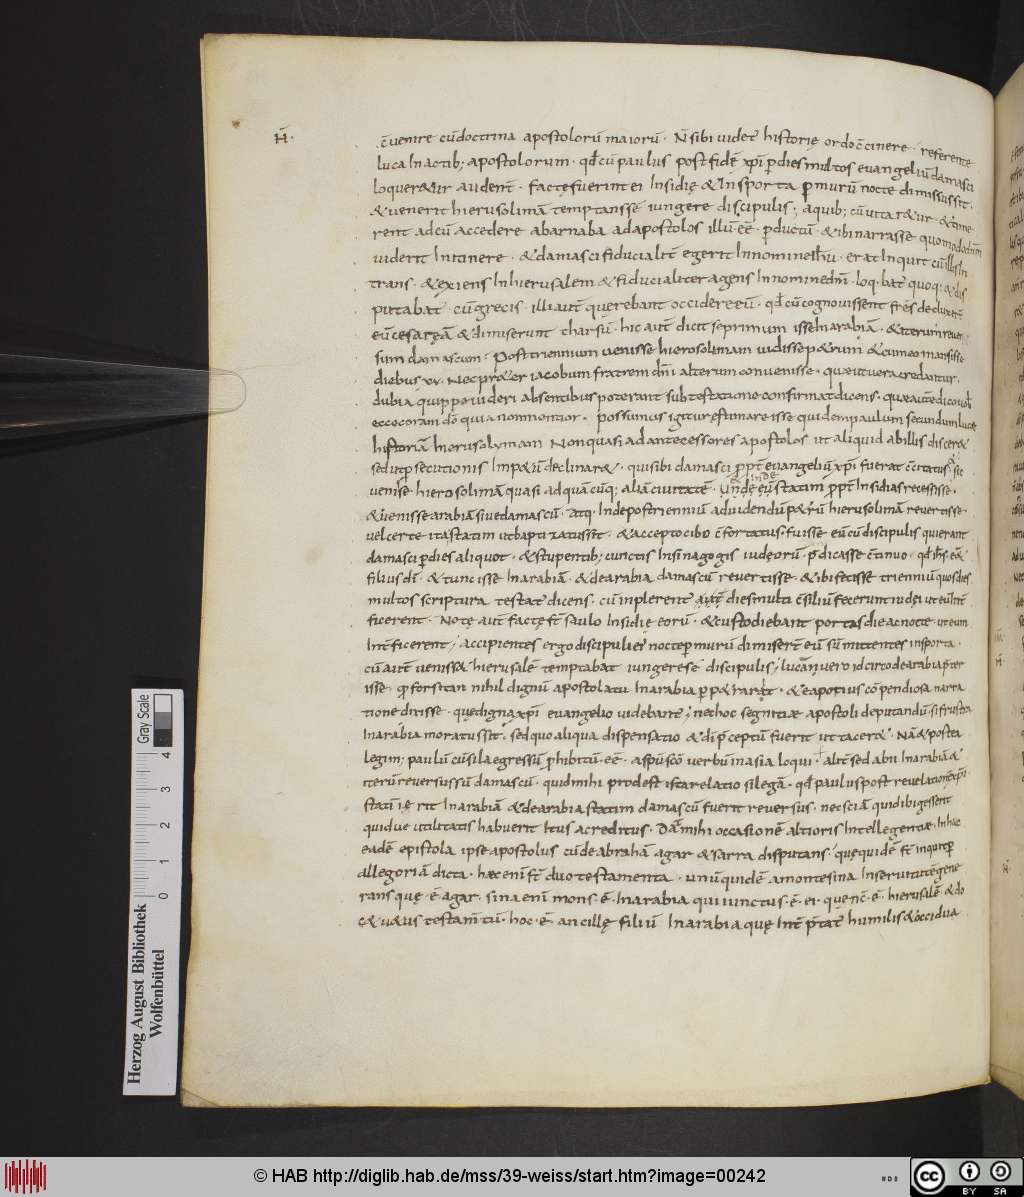 H̄.
c̄uenire cū doctrina apostolorū maiorū · N̄ sibi uidet᷒ historię ordo c̄cinere · referente
luca In actib; apostolorum · qđ cū paulus post fidē xp̄i p dies multos euangeliū damasci
loqueret᷒ur audent᷒ · factę fuerint ei Insidię & In sporta p murū nocte dimissus sit ·
& uenerit hierusolimā temptansse iungere discipulis; a quib; cū uitaret᷒ur · & time
rent ad eū accedere abarnaba ad apostolos illū ēē · pductū · & ibi narrasse quomodo dn̄m
uiderit In itinere · & damasci fiducialit̄ egerit In nomine ih̄u · erat Inquit cū illis In
trans · & exiens In hierusalem & fiducialiter agens In nomine dn̄i · loq · bat᷒ quoq · & dis
putabat · cū grecis · illi aut̄ querebant occidere eū · qđ cū cognouissent fr̄s deduxer̄
eū cesaręā & dimiserunt tharsū · hic aut̄ dicit se primum isse In arabiā · & iterum reuer
sum damascum · Post triennium uenisse hierosolimam uidisse p&rum & cum eo mansisse
diebus xv · nec pr&er iacobum fratrem dn̄i alterum conuenisse · quę ut uera credantur ·
dubia quippe uideri absentibus poterant sub testatione confirmat dicens · quę autē dico uob
ecce coram dō quia non mentior · possumus igitur ęstimare isse quidem paulum secundum lucę
historiā hierusolymam Non quasi ad antecessores apostolos ut aliquid ab illis discer&
sed ut psecutionis Imp&ū declinar& · qui sibi damasci ppt̄ euangeliū xp̄i fuerat c̄citatus & sic
uenisse · hierosolimā quasi ad quā cūq; aliā ciuitatē · Unde eū statim ppt̄ Insidias recessisse ·
& inde
& uenisse arabiā siue damascū · Atq, Inde post trienniū ad uidendū p&rū hierusolimā reuertisse ·
uel certe ita statim ut baptizatus sit · & accepto cibo c̄fortatus · fuisse eū cū discipulis qui erant
damasci p dies aliquot · & stupentib; cunctis In sinagogis iudeorū · pdicasse c̄tinuo · qđ ih̄s · ēē
filius dī · & tunc isse In arabiā · & de arabia damascū reuertisse · & ibi fecisse trienniū quos dies
multos scriptura testat᷒ dicens · cū inplerent᷒ aut̄ dies multi c̄siliū fecerunt iudei ut eū Int̄
ficerent · Notę aut̄ factę st̄ saulo Insidię eorū · & custodiebant portas die ac nocte · ut eum
Int̄ficerent; accipientes ergo discipuli ei᷒ nocte p murū dimiser̄t eū sū mittentes in sporta ·
cū aut̄ uenisset hierusalē temptabat iungere se discipulis; lucān uero idcirco de arabia pter
isse · q forsitan nihil dignū apostolatu In arabia pp&rarat · & ea potius cōpendiosa narra
tione dixisse · quę digna xp̄i euangelio uidebant᷒; nec hoc segnitiæ apostoli deputandū · si frustra
In arabia moratus sit · sed quo aliqua dispensatio & dī pceptū fuerit ut tacer& · Nā & postea
legim; paulū cū sila egressū phibitū · ēē · a spū sc̄o uerbū in asia loqui · alit̄ sed abii In arabiā &
iterū reuersus sū damascū · quid mihi prodest ista relatio si legā · qđ paulus post reuelationē xp̄i
statī ierit In arabiā & de arabia statim damascū fuerit reuersus · nec sciā quid ibi gesserit
quid ue utilitatis habuerit Itus ac reditus · Dat mihi occasionē altioris Intellegentiæ · In hac
eadē epistola ipse apostolus cū de abrahā agar & sarra disputans · quę quidē st̄ inquit p
allegoriā dicta · hæc enī st̄ duo testamenta · unū quidē a monte sina In seruitutē gene
rans quę · ē agar · sina enī mons · ē In arabia qui iunctus · ē · ei · quę nc̄ · ē · hierusalē & do
c& u&us testam̄tū · hoc · ē ancillę filiū In arabia quę Int̄ p̄tat᷒ humilis & occidua
Herzog August Bibliothek
Wolfenbüttel
Gray Scale
0 1 2 3 4
© HAB http://diglib.hab.de/mss/39-weiss/start.htm?image=00242
cc BY SA